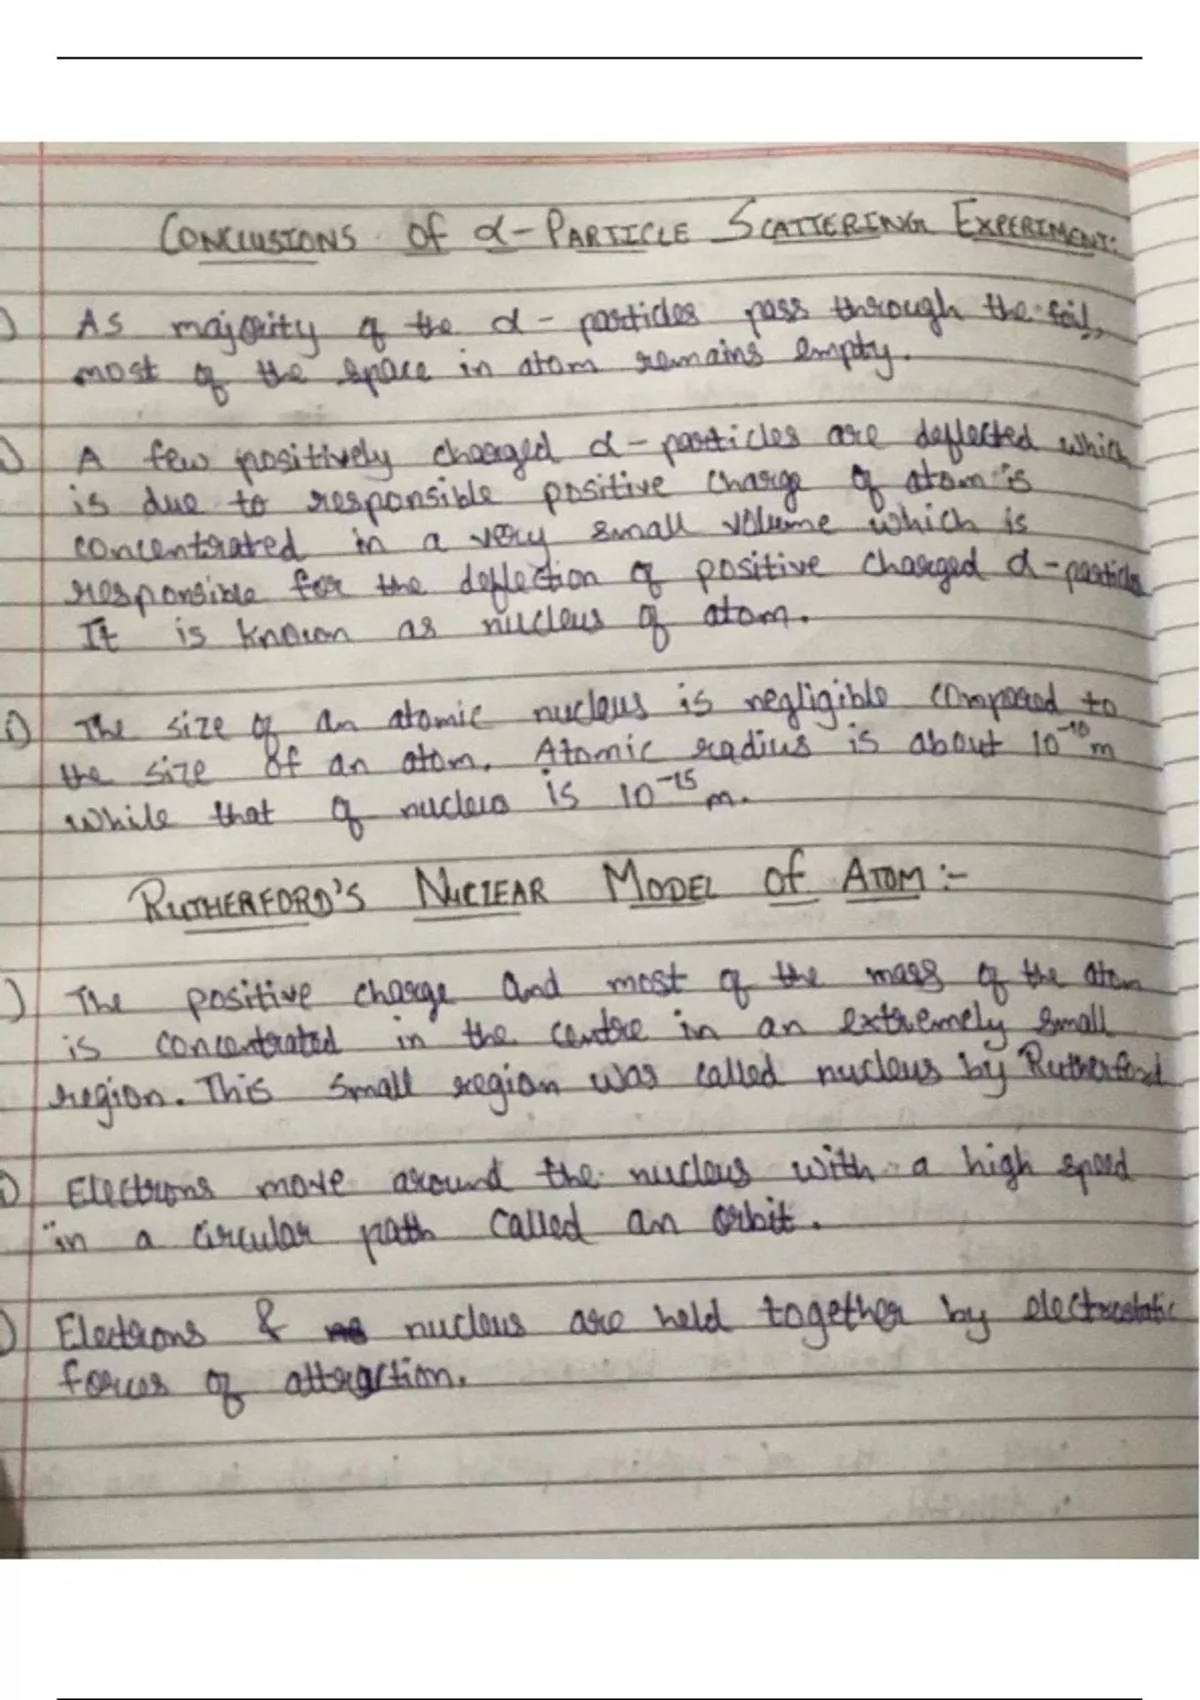 CONCLUSIONS OF α-PARTICLE SCATTERING EXPERIMENT:
) As majority of the α - particles pass through the foil,
most of the space in atom remains empty.
) A few positively charged α - particles are deflected which
is due to responsible positive charge of atom is
concentrated in a very small volume which is
responsible for the deflection of positive charged α - particles
It is known as nucleus of atom.
i) The size of an atomic nucleus is negligible compared to
the size of an atom. Atomic radius is about 10⁻¹⁰ m
while that of nucleus is 10⁻¹⁵ m.
RUTHERFORD'S NUCLEAR MODEL OF ATOM :-
) The positive charge and most of the mass of the atom
is concentrated in the centre in an extremely small
region. This small region was called nucleus by Rutherford
) Electrons move around the nucleus with a high speed
in a circular path called an orbit.
) Electrons & nucleus are held together by electrostatic
forces of attraction.